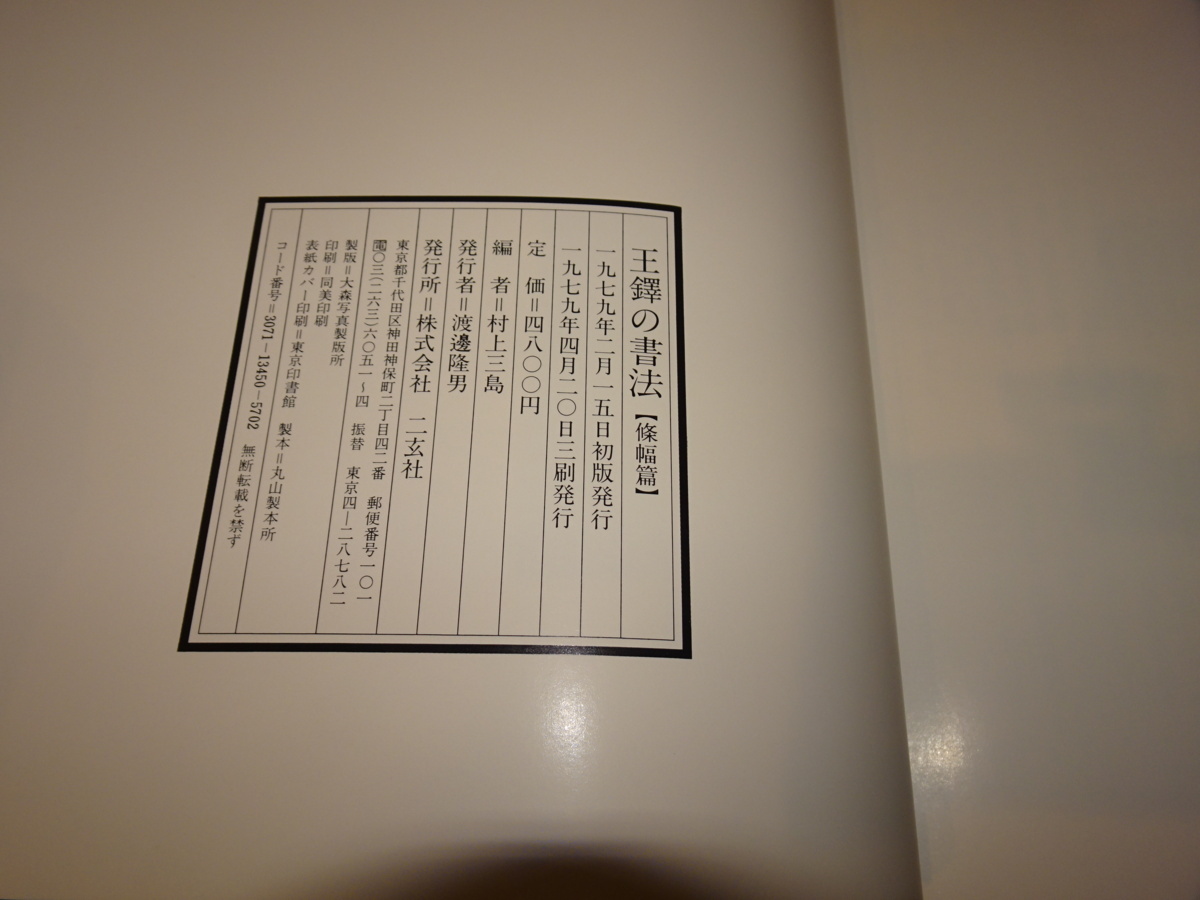 王鐸の書法【條幅篇】
一九七九年二月一五日初版発行
一九七九年四月二〇日三刷発行
定　価＝四八〇〇円
編　者＝村上三島
発行者＝渡邊隆男
発行所＝株式会社　二玄社
東京都千代田区神田神保町二丁目四二番　郵便番号一〇一
電〇三（二六三）六〇五一〜四　振替　東京四—二八七八二
製版＝大森写真製版所
印刷＝同美印刷
表紙カバー印刷＝東京印書館　製本＝丸山製本所
コード番号＝3071－13450－5702　無断転載を禁ず